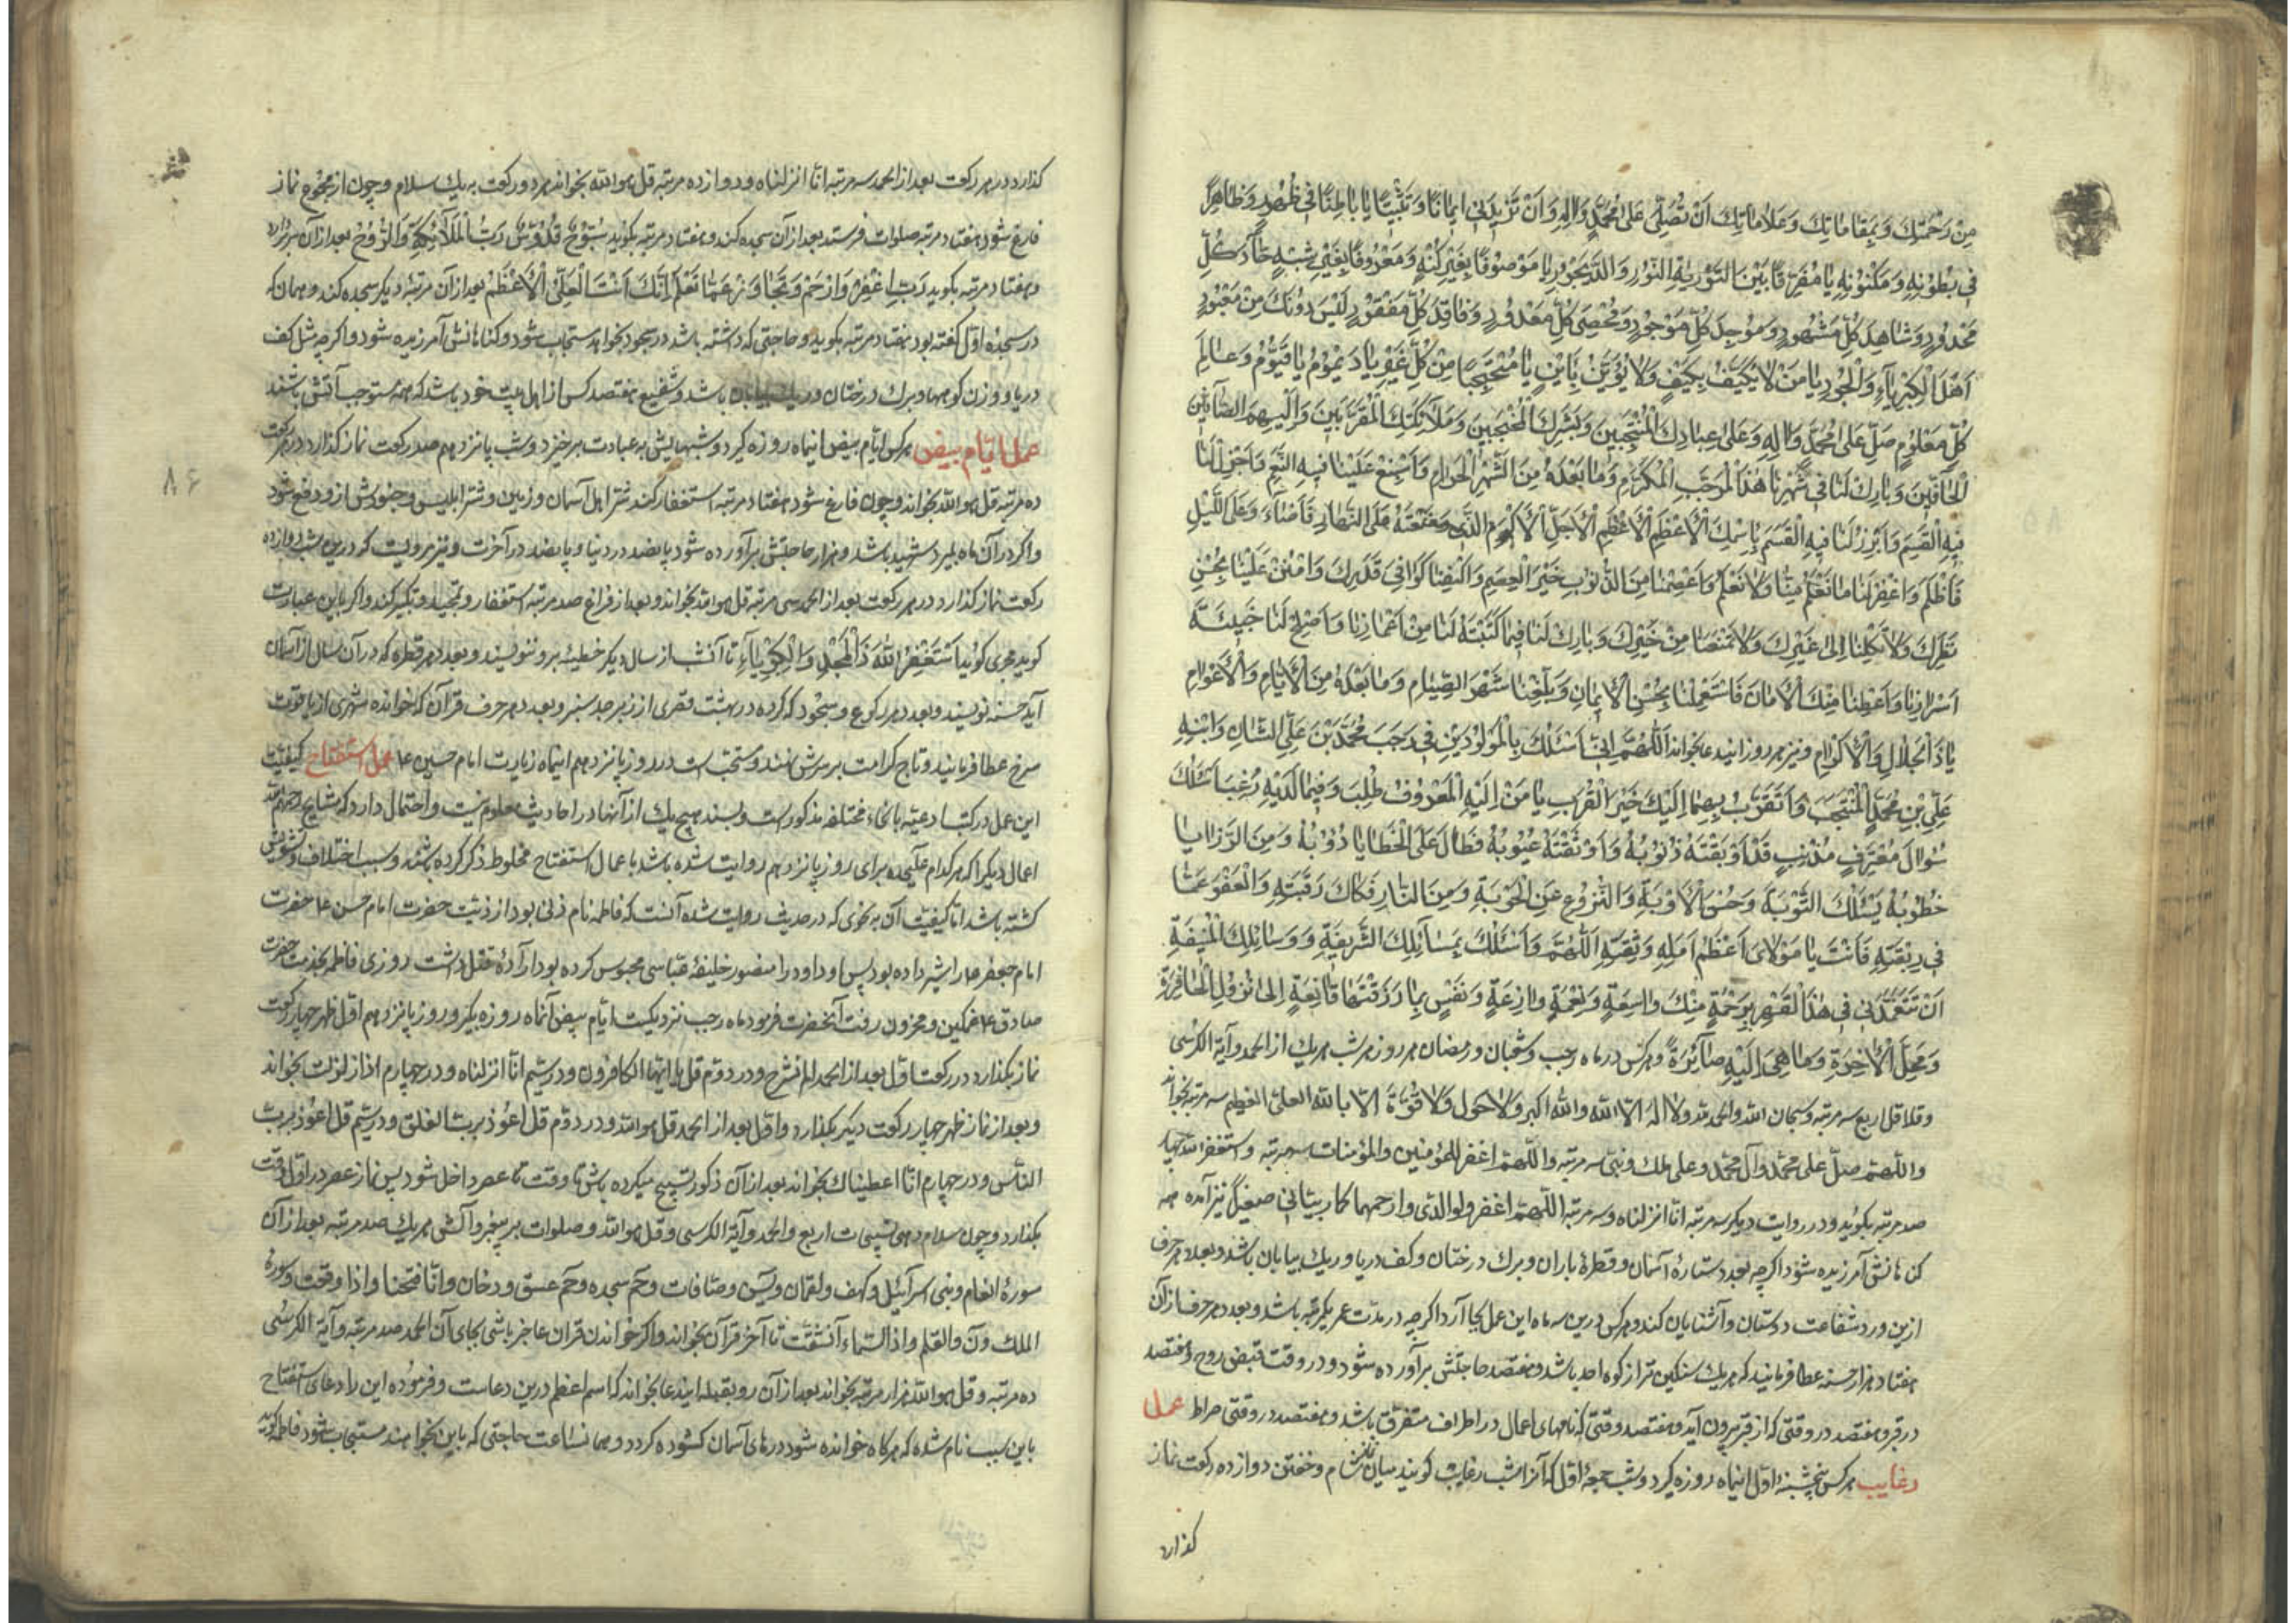 مِنْ رَحْمَتِكَ وَبِمَقَامَاتِكَ وَعَلَامَاتِكَ اَنْ تُصَلِّىَ عَلَى مُحَمَّدٍ وَالِهِ وَاَنْ تَزِيدَنِى اِيمَانًا وَتَثْبِيتًا يَا بَاطِنًا فِى ظُهُورِهِ وَظَاهِرًا
فِى بُطُونِهِ وَمَكْنُونِهِ يَا مُفَرِّقًا بَيْنَ النُّورِ وَالدَّيْجُورِ يَا مَوْصُوفًا بِغَيْرِ كُنْهٍ وَمَعْرُوفًا بِغَيْرِ شِبْهٍ حَآدَّ كُلِّ
مَحْدُودٍ وَشَاهِدَ كُلِّ مَشْهُودٍ وَمُوجِدَ كُلِّ مَوْجُودٍ وَمُحْصِىَ كُلِّ مَعْدُودٍ وَفَاقِدَ كُلِّ مَفْقُودٍ لَيْسَ دُونَكَ مِنْ مَعْبُودٍ
اَهْلَ الْكِبْرِيَآءِ وَالْجُودِ يَا مَنْ لَا يُكَيَّفُ بِكَيْفٍ وَلَا يُؤَيَّنُ بِاَيْنٍ يَا مُحْتَجِبًا مِنْ كُلِّ عَيْنٍ يَا دَيْمُومُ يَا قَيُّومُ وَعَالِمَ
كُلِّ مَعْلُومٍ صَلِّ عَلَى مُحَمَّدٍ وَالِهِ وَعَلَى عِبَادِكَ الْمُنْتَجَبِينَ وَبَشَرِكَ الْمُحْتَجِبِينَ وَمَلَآئِكَتِكَ الْمُقَرَّبِينَ وَالْبُهْمِ الصَّآفِّينَ
الْحَآفِّينَ وَبَارِكْ لَنَا فِى شَهْرِنَا هٰذَا الْمُرَجَّبِ الْمُكَرَّمِ وَمَا بَعْدَهُ مِنَ الْاَشْهُرِ الْحُرُمِ وَاَسْبِغْ عَلَيْنَا فِيهِ النِّعَمَ وَاَجْزِلْ لَنَا
فِيهِ الْقِسَمَ وَاَبْرِرْ لَنَا فِيهِ الْقَسَمَ بِاسْمِكَ الْاَعْظَمِ الْاَعْظَمِ الْاَجَلِّ الْاَكْرَمِ الَّذِى وَضَعْتَهُ عَلَى النَّهَارِ فَاَضَآءَ وَعَلَى اللَّيْلِ
فَاَظْلَمَ وَاغْفِرْ لَنَا مَا تَعْلَمُ مِنَّا وَلَا نَعْلَمُ وَاعْصِمْنَا مِنَ الذُّنُوبِ خَيْرَ الْعِصَمِ وَاكْفِنَا كَوَافِىَ قَدَرِكَ وَامْنُنْ عَلَيْنَا بِحُسْنِ
نَظَرِكَ وَلَا تَكِلْنَا اِلَى غَيْرِكَ وَلَا تَمْنَعْنَا مِنْ خَيْرِكَ وَبَارِكْ لَنَا فِيمَا كَتَبْتَهُ لَنَا مِنْ اَعْمَارِنَا وَاَصْلِحْ لَنَا خَبِيئَةَ
اَسْرَارِنَا وَاَعْطِنَا مِنْكَ الْاَمَانَ وَاسْتَعْمِلْنَا بِحُسْنِ الْاِيمَانِ وَبَلِّغْنَا شَهْرَ الصِّيَامِ وَمَا بَعْدَهُ مِنَ الْاَيَّامِ وَالْاَعْوَامِ
يَا ذَا الْجَلَالِ وَالْاِكْرَامِ و نيز هر روز ايندعا بخواند اَللّٰهُمَّ اِنِّى اَسْئَلُكَ بِالْمَوْلُودَيْنِ فِى رَجَبَ مُحَمَّدِ بْنِ عَلِىٍّ الثَّانِى وَابْنِهِ
عَلِىِّ بْنِ مُحَمَّدٍ الْمُنْتَجَبِ وَاَتَقَرَّبُ بِهِمَا اِلَيْكَ خَيْرَ الْقُرَبِ يَا مَنْ اِلَيْهِ الْمَعْرُوفُ طُلِبَ وَفِيمَا لَدَيْهِ رُغِبَ اَسْئَلُكَ
سُؤَالَ مُعْتَرِفٍ مُذْنِبٍ قَدْ اَوْبَقَتْهُ ذُنُوبُهُ وَاَوْثَقَتْهُ عُيُوبُهُ فَطَالَ عَلَى الْخَطَايَا دُؤُوبُهُ وَمِنَ الرَّزَايَا
خُطُوبُهُ يَسْئَلُكَ التَّوْبَةَ وَحُسْنَ الْاَوْبَةِ وَالنُّزُوعَ عَنِ الْحَوْبَةِ وَمِنَ النَّارِ فَكَاكَ رَقَبَتِهِ وَالْعَفْوَ عَمَّا
فِى رِبْقَتِهِ فَاَنْتَ يَا مَوْلَاىَ اَعْظَمُ اَمَلِهِ وَثِقَتِهِ اَللّٰهُمَّ وَاَسْئَلُكَ بِمَسَآئِلِكَ الشَّرِيفَةِ وَوَسَائِلِكَ الْمُنِيفَةِ
اَنْ تَتَغَمَّدَنِى فِى هٰذَا الشَّهْرِ بِرَحْمَةٍ مِنْكَ وَاسِعَةٍ وَنِعْمَةٍ وَازِعَةٍ وَنَفْسٍ بِمَا رَزَقْتَهَا قَانِعَةٍ اِلَى نُزُولِ الْحَافِرَةِ
وَمَحَلِّ الْاٰخِرَةِ وَمَا هِىَ اِلَيْهِ صَآئِرَةٌ و هركس در ماه رجب و شعبان و رمضان هر روز و هر شب هر يك از الحمد و آية الكرسى
و قلاقل اربع سه مرتبه و سبحان الله والحمد لله ولا اله الا الله والله اكبر ولا حول ولا قوة الا بالله العلى العظيم سه مرتبه بخواند
و اللهم صل على محمد وآل محمد و على ملك و نبى سه مرتبه و اللهم اغفر للمؤمنين والمؤمنات سه مرتبه و استغفر الله چهار
صد مرتبه بگويد و در روايت ديگر سه مرتبه انا انزلناه و سه مرتبه اللهم اغفر ولوالدى وارحمهما كما ربيانى صغيرا نيز آمده همه
كناهانش آمرزيده شود اكرچه بعدد ستارهٔ آسمان و قطرهٔ باران و برك درختان و كف دريا و ريك بيابان باشد و بعدد هر حرف
ازين ورد شفاعت دوستان و آشنايان كند و هركس درين سه ماه اين عمل بجا آرد اكرچه در مدت عمر يكمرتبه باشد و بعدد هر حرف از آن
هفتاد هزار حسنه عطا فرمايند كه هر يك سنكين تر از كوه احد باشد و هفتصد حاجتش برآورده شود و در وقت قبض روح و هفتصد
در قبر و هفتصد در وقتى كه از قبر بيرون آيد و هفتصد وقتى كه نامهاى اعمال در اطراف متفرق باشد و هفتصد در وقتى صراط عمل
رغايب هركس پنجشنبهٔ اول اينماه روزه گيرد و شب جمعهٔ اول كه آنرا شب رغايب كويند ميان نماز شام و خفتن دوازده ركعت نماز
كذارد
كذارد در هر ركعت بعد از الحمد سه مرتبه انا انزلناه و دوازده مرتبه قل هو الله بخواند هر دو ركعت به يك سلام و چون از مجموع نماز
فارغ شود هفتاد مرتبه صلوات فرستد بعد از آن سجده كند و هفتاد مرتبه بكويد سُبُّوحٌ قُدُّوسٌ رَبُّ الْمَلَآئِكَةِ وَالرُّوحِ بعد از آن سر بردارد
و هفتاد مرتبه بكويد رَبِّ اغْفِرْ وَارْحَمْ وَتَجَاوَزْ عَمَّا تَعْلَمُ اِنَّكَ اَنْتَ الْعَلِىُّ الْاَعْظَمُ بعد از آن مرتبهٔ ديكر سجده كند و همان كه
در سجدهٔ اول كفته بود هفتاد مرتبه بكويد و حاجتى كه داشته باشد در سجود بخواهد مستجاب شود و كناهانش آمرزيده شود و اكرچه مثل كف
دريا و وزن كوهها و برك درختان و ريك بيابان باشد و شفيع هفتصد كس از اهل بيت خود باشد كه همه مستوجب آتش باشند
عمل ايام بيض هركس ايام بيض اينماه روزه كيرد و شبهايش به عبادت برخيزد و شب پانزدهم صد ركعت نماز كذارد در هر ركعت
ده مرتبه قل هو الله بخواند و چون فارغ شود هفتاد مرتبه استغفار كند شر اهل آسمان و زمين و شر ابليس و جنودش از و دفع شود
و اكر در آن ماه بميرد شهيد باشد و هزار حاجتش برآورده شود پانصد در دنيا و پانصد در آخرت و نيز مرويست كه درين شب دوازده
ركعت نماز كذارد در هر ركعت بعد از الحمد سى مرتبه قل هو الله بخواند و بعد از فراغ صد مرتبه استغفار و تمجيد و تكبير كند و اكر باين عبارت
كويد مجرى كويد اَسْتَغْفِرُ اللهَ ذَا الْمَجْدِ وَالْكِبْرِيَآءِ تا آنشب از سال ديكر خطيئه برو ننويسند و بعدد هر قطره كه در آن سال از آسمان
آيد حسنه نويسند و بعدد هر ركوع و سجود كه كرده در بهشت قصرى از زبرجد سبز و بعدد هر حرف قرآن كه خوانده شهرى از ياقوت
سرخ عطا فرمايند و تاج كرامت بر سرش نهند و مستحبست در روز پانزدهم اينماه زيارت امام حسين ع عمل استفتاح كيفيت
اين عمل در كتب ادعيه بانحاء مختلفه مذكور است و بسند هيچ يك از آنها در احاديث معلوم نيست و احتمال دارد كه مشايخ رحمهم الله
اعمال ديكر را كه هر كدام عليحده براى روز پانزدهم روايت شده باشد باعمال استفتاح مخلوط ذكر كرده باشند و سبب اختلاف و تشويش
كشته باشد اما كيفيت آن به نحوى كه در حديث روايت شده آنست كه فاطمه نام زنى بود از ذريت حضرت امام حسن ع حضرت
امام جعفر ع را شير داده بود پس او داود را منصور خليفهٔ عباسى محبوس كرده بود ارادهٔ قتل داشت روزى فاطمه بخدمت حضرت
صادق ع غمكين و محزون رفت آنحضرت فرمود ماه رجب نزديكست ايام بيض آنماه روزه بكير و روز پانزدهم اول ظهر چهار ركعت
نماز بكذارد در ركعت اول بعد از الحمد الم نشرح و در دوم قل يا ايها الكافرون و در سيم انا انزلناه و در چهارم اذا زلزلت بخواند
و بعد از نماز ظهر چهار ركعت ديكر بكذارد و اول بعد از الحمد قل هو الله و در دوم قل اعوذ برب الفلق و در سيم قل اعوذ برب
الناس و در چهارم انا اعطيناك بخواند بعد از آن ذكور تسبيح ميكرده باش تا وقت تا عصر داخل شود پس نماز عصر در اول وقت
بكذارد و چون سلام دهى تسبيحات اربع و الحمد و آية الكرسى و قل هو الله و صلوات بر پيغمبر و آلش هر يك صد مرتبه بعد از آن
سورهٔ انعام و بنى اسرآئيل و كهف و لقمان و يس و صافات و حم سجده و حم عسق و دخان و انا فتحنا و اذا وقعت و سورهٔ
الملك و ن والقلم و اذا السماء انشقت تا آخر قرآن بخواند و اكر خواندن قران عاجز باشى بجاى آن الحمد صد مرتبه و آية الكرسى
ده مرتبه و قل هو الله هزار مرتبه بخواند بعد از آن رو بقبله ايندعا بخواند كه اسم اعظم درين دعاست و فرموده اين را دعاى استفتاح
باين سبب نام شده كه هركاه خوانده شود درهاى آسمان كشوده كردد و همانساعت حاجتى كه باين بخواهند مستجاب شود فاطمه كويد
٨٦